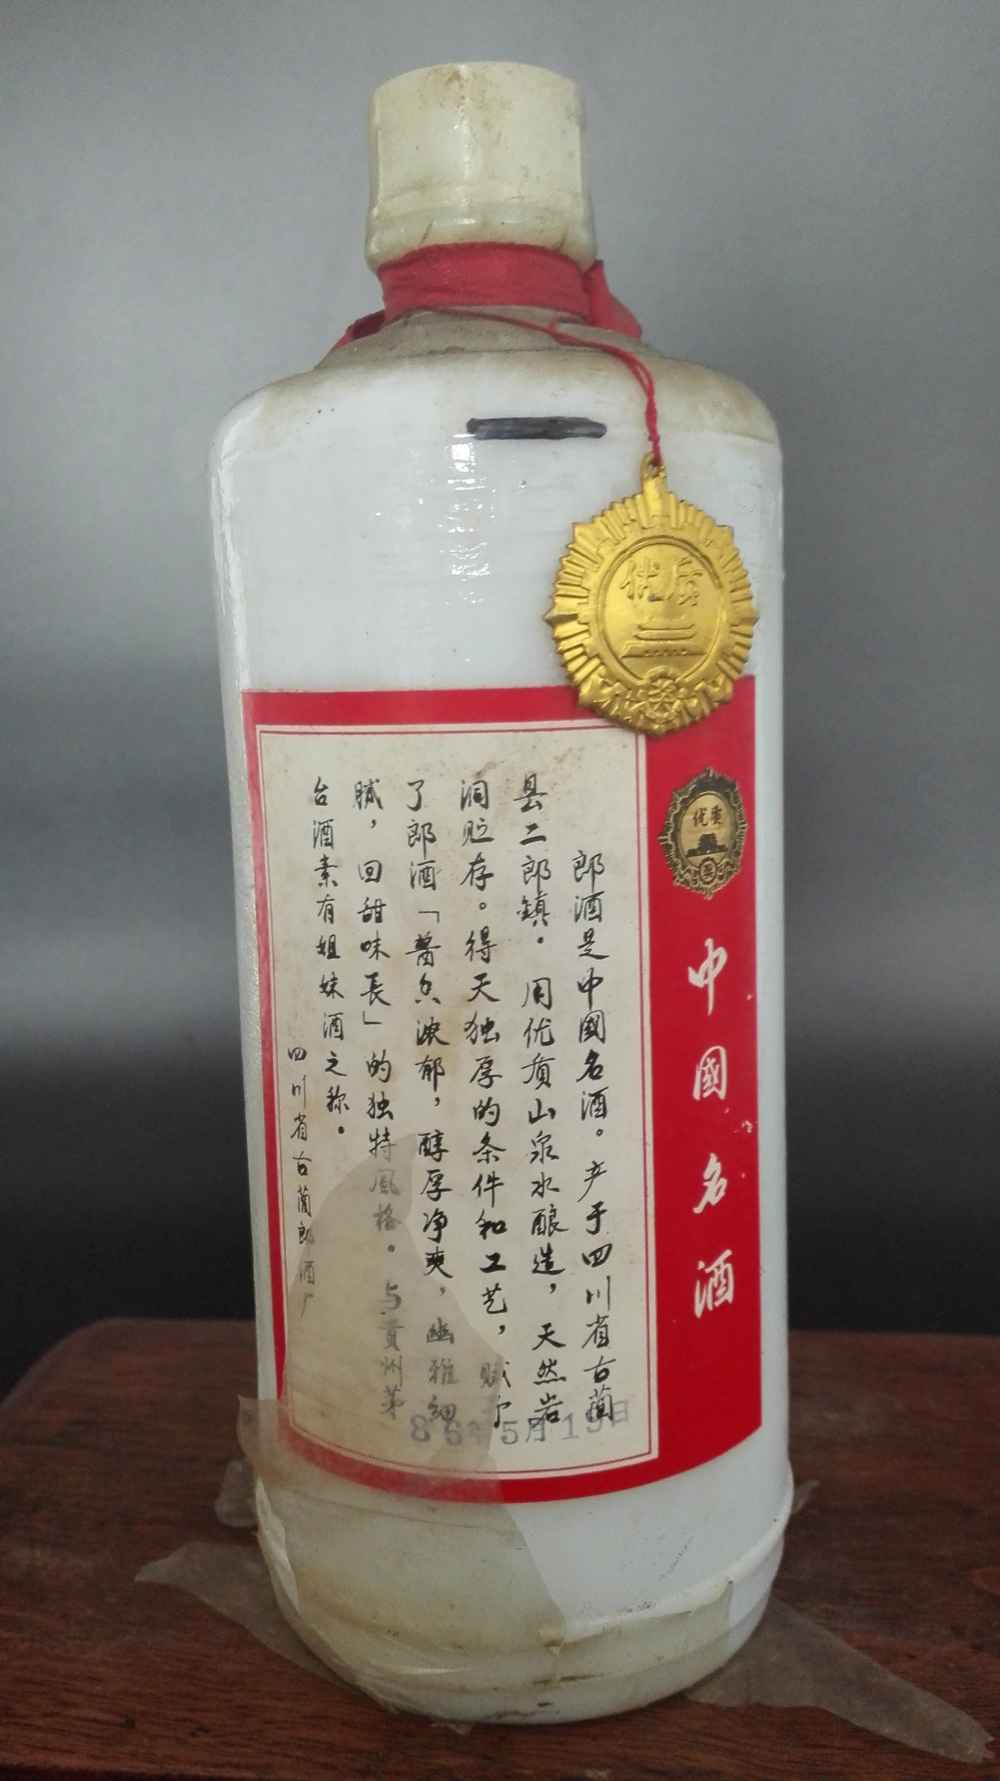 优质
优质
中國名酒
郎酒是中國名酒。产于四川省古蔺
县二郎鎮。用优质山泉水酿造，天然岩
洞贮存。得天独厚的条件和工艺，赋予
了郎酒「酱香浓郁，醇厚净爽，幽雅细
腻，回甜味長」的独特風格。与贵州茅
台酒素有姐妹酒之称。
四川省古蔺郎酒厂
86年5月19日